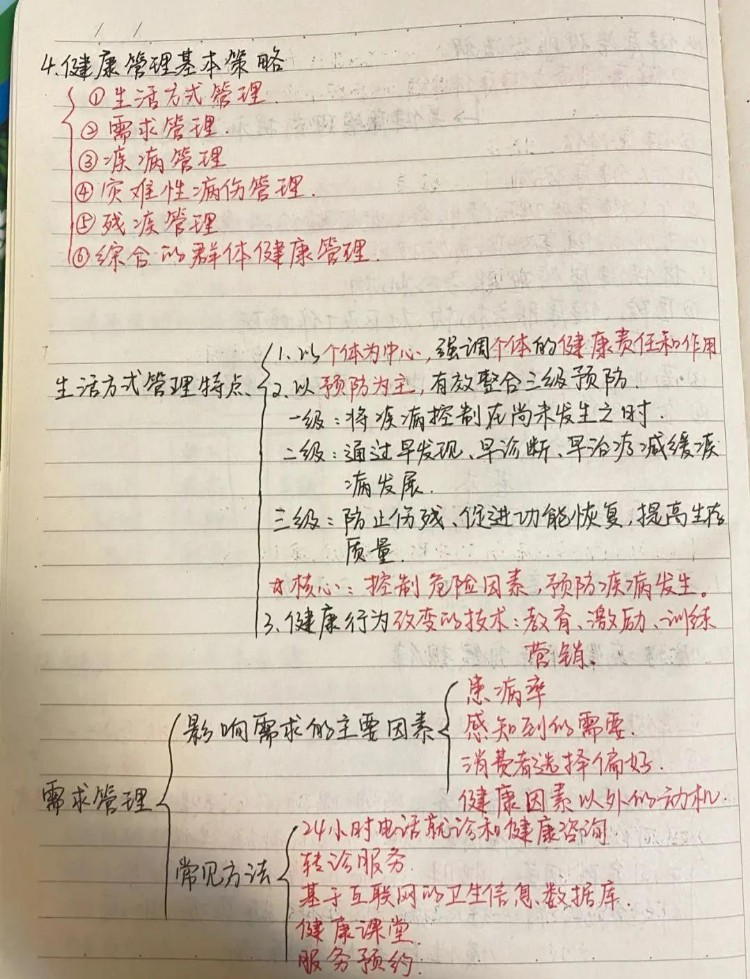 4.健康管理基本策略
①生活方式管理.
②需求管理.
③疾病管理
④灾难性病伤管理.
⑤残疾管理
⑥综合的群体健康管理.
生活方式管理特点.
1.以个体为中心,强调个体的健康责任和作用
2.以预防为主,有效整合三级预防
一级:将疾病控制在尚未发生之时.
二级:通过早发现、早诊断、早治疗减缓疾
病发展.
三级:防止伤残、促进功能恢复,提高生存
质量.
☆核心:控制危险因素,预防疾病发生。
3.健康行为改变的技术:教育、激励、训练
营销.
需求管理
影响需求的主要因素
患病率
感知到的需要.
消费者选择偏好.
健康因素以外的动机.
常见方法
24小时电话就诊和健康咨询
转诊服务.
基于互联网的卫生信息数据库.
健康课堂.
服务预约.